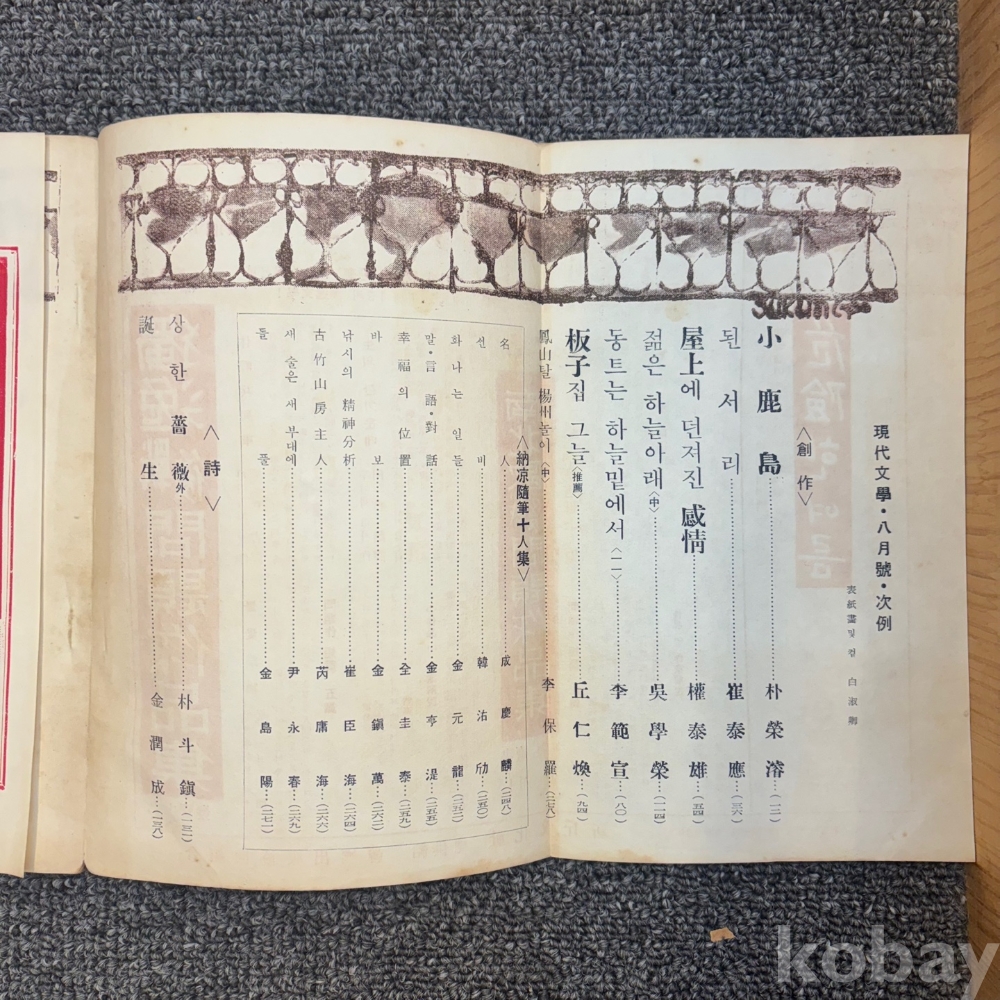 現代文學・八月號・次例
表紙畵및컽 白淑卿
<創作>
小鹿島……朴榮濬…(一二)
된서리……崔泰應…(三六)
屋上에 던져진 感情……權泰雄…(五四)
젊은 하늘아래<中>……吳學榮…(一一四)
동트는 하늘밑에서<一一>……李範宣…(八〇)
板子집 그늘<推薦>……丘仁煥…(九四)
鳳山탈 楊州놀이<中>……李保羅…(二七八)
<納凉隨筆十人集>
名人……成慶麟…(二四八)
선비……韓沽劤…(二五〇)
화나는 일들……金元龍…(二五二)
말・言語・對話……金亨湜…(二五五)
幸福의 位置……全圭泰…(二五九)
바보……金鎭萬…(二六二)
낚시의 精神分析……崔臣海…(二六四)
古竹山房主人……芮庸海…(二六六)
새 술은 새 부대에……尹永春…(二六九)
들풀……金島陽…(二七二)
<詩>
상한 薔薇外……朴斗鎭…(一三一)
誕生……金潤成…(一三八)
kobay